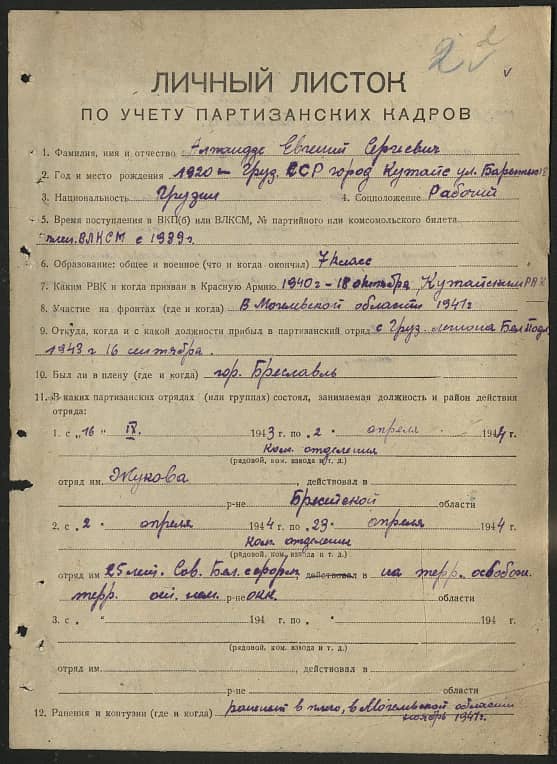 2
2
v
ЛИЧНЫЙ ЛИСТОК
ПО УЧЕТУ ПАРТИЗАНСКИХ КАДРОВ
1. Фамилия, имя и отчество Евгений Сергиевич
2. Год и место рождения 1920 – Груз. ССР город Кутаис ул.
3. Национальность Грузин 4. Соцположение Рабочий
5. Время поступления в ВКП(б) или ВЛКСМ, № партийного или комсомольского билета
член. ВЛКСМ с 1939 г.
6. Образование: общее и военное (что и когда окончил) 7 класс
7. Каким РВК и когда призван в Красную Армию 1940 г – 18 октября, Кутайским РВК
8. Участие на фронтах (где и когда) В Могилевской области 1941 г
9. Откуда, когда и с какой должности прибыл в партизанский отряд с Груз. легиона Бел Подл
1943 г 16 сентября.
10. Был ли в плену (где и когда) гор. Бреславль
11. В каких партизанских отрядах (или группах) состоял, занимаемая должность и район действия
отряда:
1. с „16 " IX. 1943 г. по „2 " апреля 1944 г.
ком. отделения
(рядовой, ком. взвода и т. д.)
отряд им. Жукова действовал в
р-не Брестской области
2. с „2 " апреля 1944 г. по „23 " апреля 1944 г.
ком отделения
(рядовой, ком. взвода и т. д.)
отряд им 25 лет. Сов. Бел. с форм, действовал в на терр. освобож.
терр. от. нем. р-не окк. области
3. с „ " 194 г. по „ " 194 г.
(рядовой, ком. взвода и т. д.)
отряд им. действовал в
р-не области
12. Ранения и контузии (где и когда) ранений в плечо, в Могилевской области
ноябрь 1941 г.